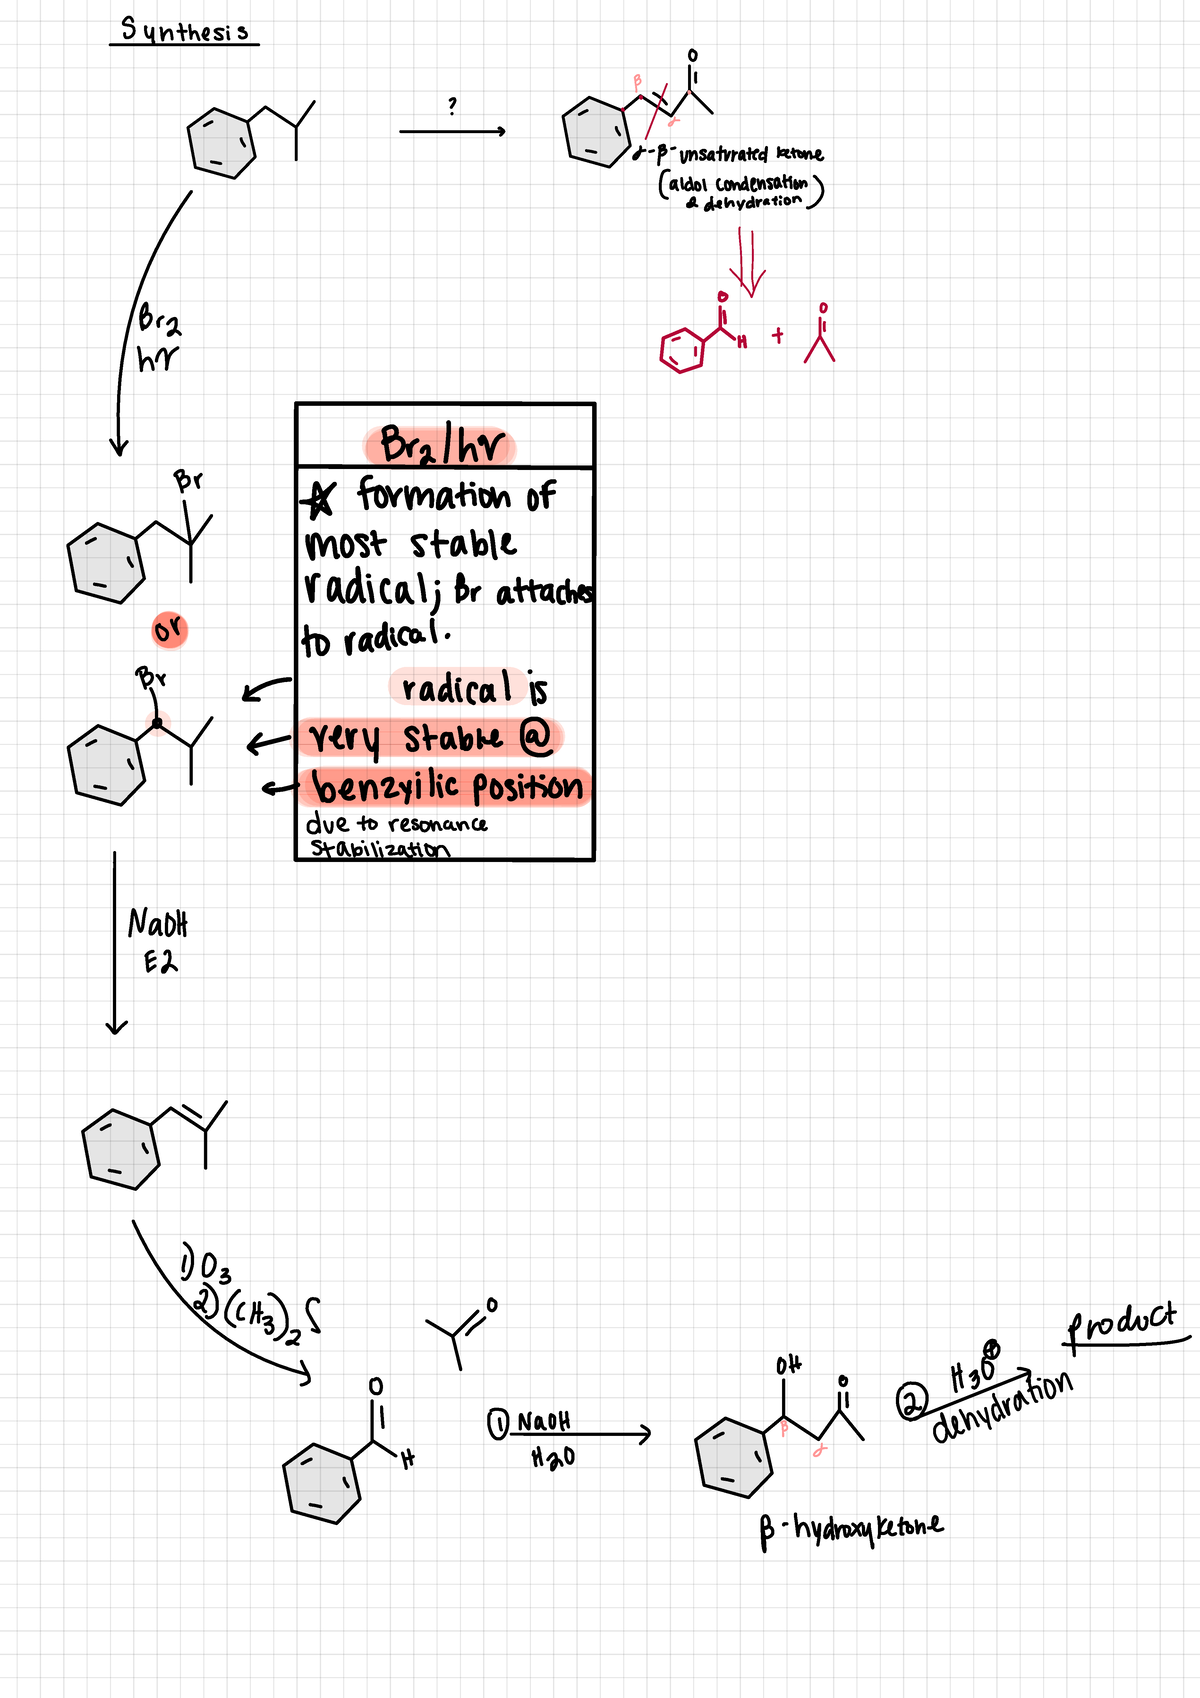 Synthesis
?
O
β
α
α-β-unsaturated ketone
(aldol condensation
& dehydration)
O
H
+
O
Br2
hν
Br2/hν
☆ formation of
most stable
radical; Br attaches
to radical.
radical is
very stable @
benzyilic position
due to resonance
stabilization
Br
or
Br
NaOH
E2
1) O3
2) (CH3)2 S
O
O
H
① NaOH
H2O
OH
O
β
α
β-hydroxyketone
② H3O⊕
dehydration
Product